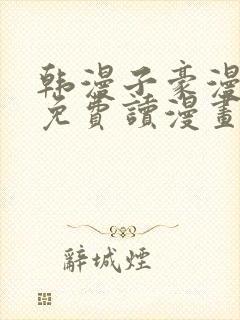 韩漫子豪漫
免費讀漫畫
辭城煙